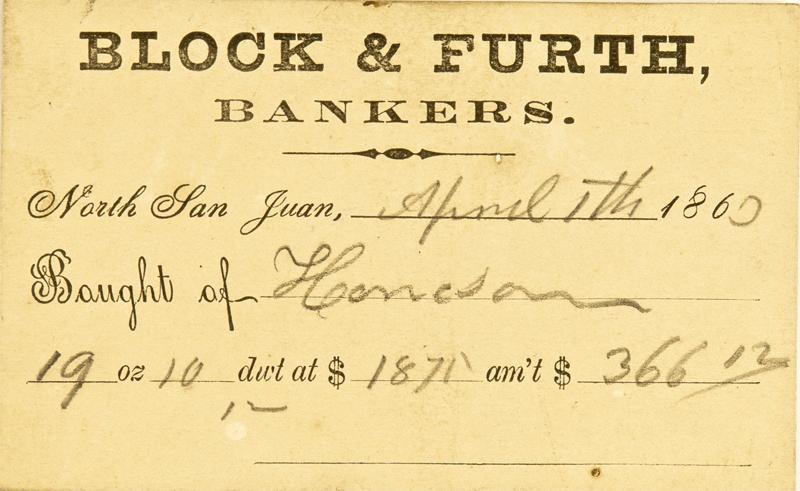 BLOCK & FURTH,
BANKERS.
North San Juan, April 1th 1860
Bought of
19 oz 10 dwt at $ 1875 am't $ 366 12
12